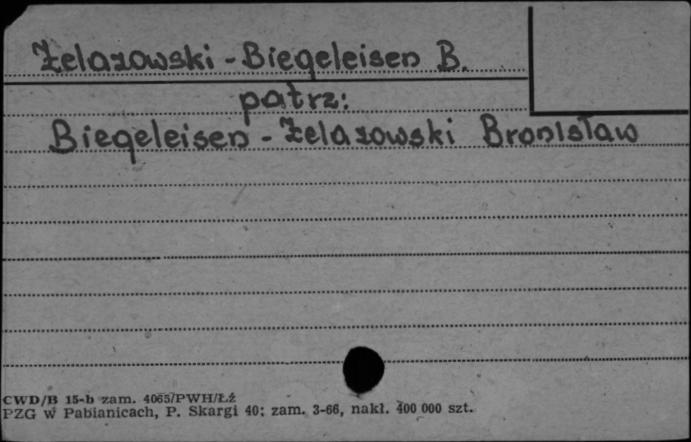 Żelazowski - Biegeleisen B.
patrz:
Biegeleisen - Żelazowski Bronisław
CWD/B 15-b zam. 4065/PWH/Łź
PZG w Pabianicach, P. Skargi 40; zam. 3-66, nakł. 400 000 szt.